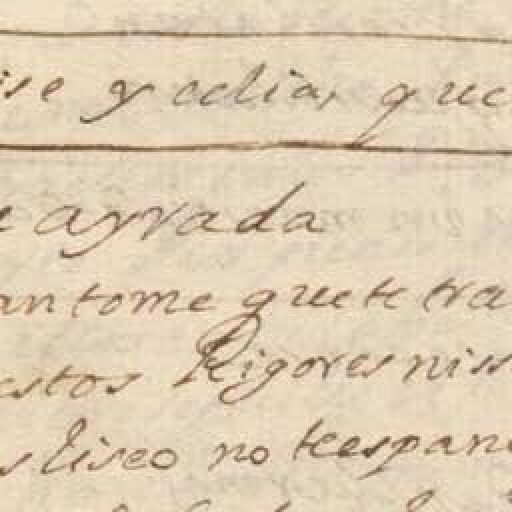 ise y celia, que
e ayrada
antome que te tra
estos Rigores niss
s liseo no te espan